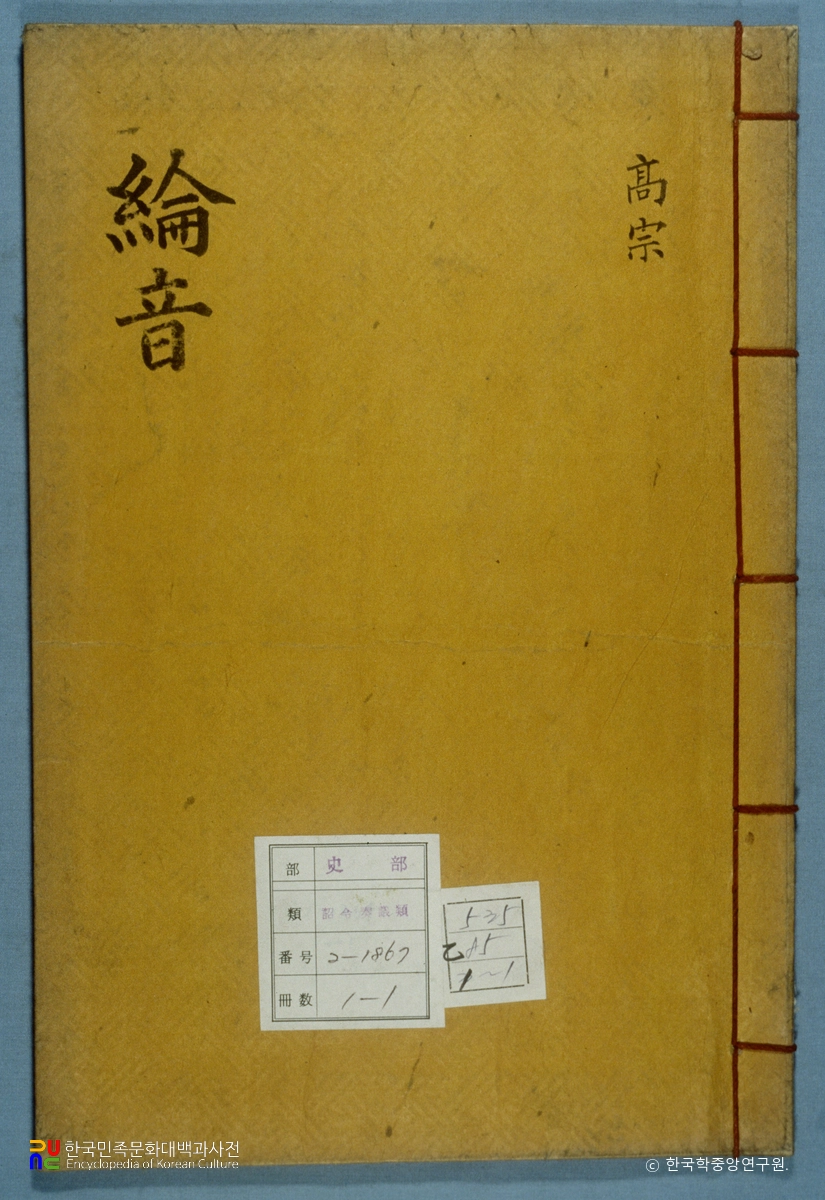 高宗
綸音
部 史部
類 詔令奏議類
番号 2-1867
冊数 1-1
535
乙 A5
1~1
한국민족문화대백과사전
Encyclopedia of Korean Culture
ⓒ 한국학중앙연구원.